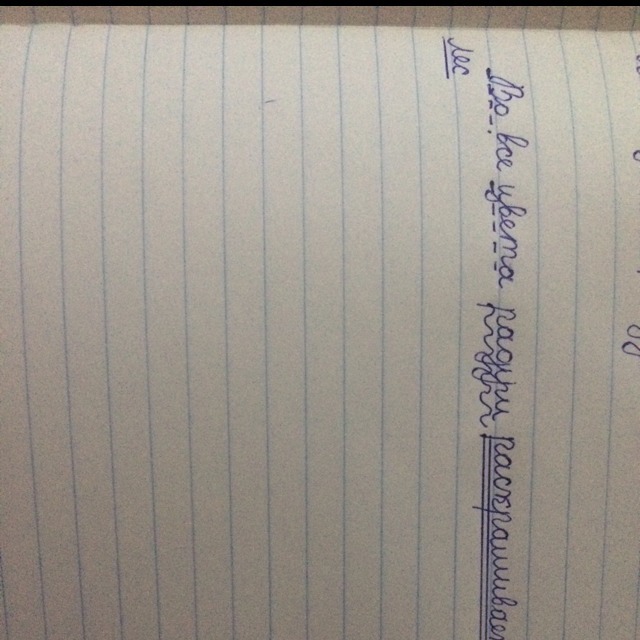 Во все цвета радуги раскрашивая
лес